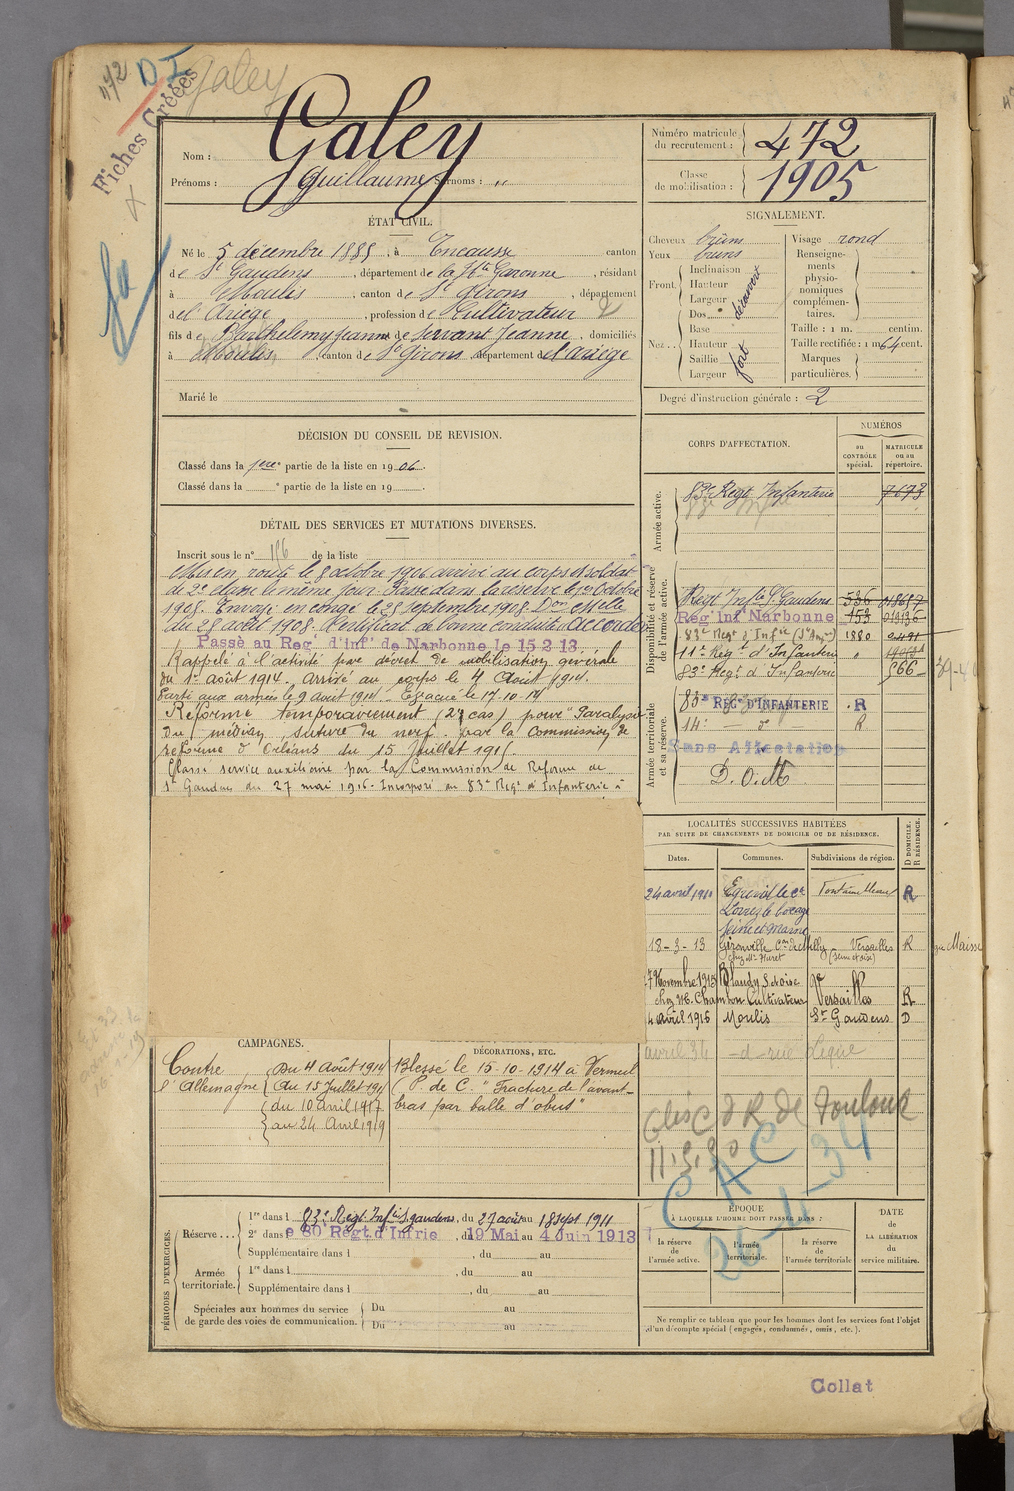 472
D I
Galey
Fiches Créées
Nom : Galey
Prénoms : Guillaume Surnoms : "
Numéro matricule du recrutement : 472
Classe de mobilisation : 1905
ÉTAT CIVIL.
Né le 5 décembre 1885, à Encausse canton
de St Gaudens, département de la Hte Garonne, résidant
à Moulis, canton de St Girons, département
de l'Ariège, profession de Cultivateur
fils de Barthélemy Jeanne et de Servant Jeanne, domiciliés
à Moulis canton de St Girons, département de l'Ariège
Marié le
SIGNALEMENT.
Cheveux bruns
Yeux bruns
Front. Inclinaison
Hauteur
Largeur
découvert
Nez.. Dos
Base
Hauteur
Saillie
Largeur
fort
Visage rond
Renseignements physionomiques complémentaires.
Taille : 1 m. centim.
Taille rectifiée : 1 m 64 cent.
Marques particulières.
Degré d'instruction générale : 2
DÉCISION DU CONSEIL DE REVISION.
Classé dans la 1ère partie de la liste en 1906.
Classé dans la e partie de la liste en 19
DÉTAIL DES SERVICES ET MUTATIONS DIVERSES.
Inscrit sous le n° de la liste
Mis en route le 8 octobre 1906 arrivé au corps et soldat
de 2e classe le même jour. Passé dans la réserve le 1er Octobre
1908. Envoyé en congé le 25 septembre 1908. Don Melle
du 28 août 1908. Certificat de bonne conduite : Accordé
Passé au Regt d'inft de Narbonne le 15-2-13
Rappelé à l'activité par décret de mobilisation générale
du 1er août 1914. Arrivé au corps le 4 Août 1914.
Parti aux armées le 9 août 1914. Evacué le 17.10.14
Réformé temporairement (2e cas) pour "Paralysie
du médian, suture du nerf. par la Commission de
réforme d'Orléans du 15 Juillet 1915.
Classé service auxiliaire par la Commission de Réforme de
St Gaudens du 27 mai 1916. Incorporé au 83e Regt d'Infanterie à
CORPS D'AFFECTATION.
NUMÉROS
au CONTRÔLE spécial.
MATRICULE ou au répertoire.
Armée active.
83e Régt Infanterie 7673
Disponibilité et réserve de l'armée active.
Régt Infie St Gaudens 536
Reg Inf Narbonne 153
83e Regt d'Infie 1880
11e Regt d'Infanterie "
83e Regt d'Infanterie 566
Armée territoriale et sa réserve.
83e REGt D'INFANTERIE R
14e d° R
Sans Affectation
D. O. M.
LOCALITÉS SUCCESSIVES HABITÉES
PAR SUITE DE CHANGEMENTS DE DOMICILE OU DE RÉSIDENCE.
Dates. Communes. Subdivisions de région.
D DOMICILE. R RÉSIDENCE.
24 avril 1910 Egreville Con Lorrez le bocage Seine et Marne Fontainebleau R
18-3-13 Gironville Con de Milly chez Mr Huret Versailles (Seine et Oise) R
par Maisse
17 Novembre 1915 Blandy S et oise
chez M. Chambon Cultivateur Versailles R
4 Avril 1916 Moulis St Gaudens D
avril 34
de Toulouse
CAMPAGNES.
Contre l'Allemagne
Du 4 Août 1914
Au 15 Juillet 1915
du 10 avril 1917
au 24 Avril 1919
DÉCORATIONS, ETC.
Blessé le 15-10-1914 à Vermeil
(P. de C. "Fracture de l'avant-
bras par balle d'obus"
C A C
26-11-34
PÉRIODES D'EXERCICES.
Réserve... 1re dans l 83e Régt Infie St Gaudens, du 27 août au 18 sept 1911
2e dans le 80e Regt d'Infrie, du 19 Mai au 4 Juin 1913
Supplémentaire dans l , du au
Armée territoriale. 1re dans l , du au
Supplémentaire dans l , du au
Spéciales aux hommes du service de garde des voies de communication. Du au
Du au
ÉPOQUE
À LAQUELLE L'HOMME DOIT PASSER DANS :
la réserve de l'armée active.
l'armée territoriale.
la réserve de l'armée territoriale
DATE DE LA LIBÉRATION du service militaire.
Ne remplir ce tableau que pour les hommes dont les services font l'objet
d'un décompte spécial (engagés, condamnés, omis, etc.).
Collat